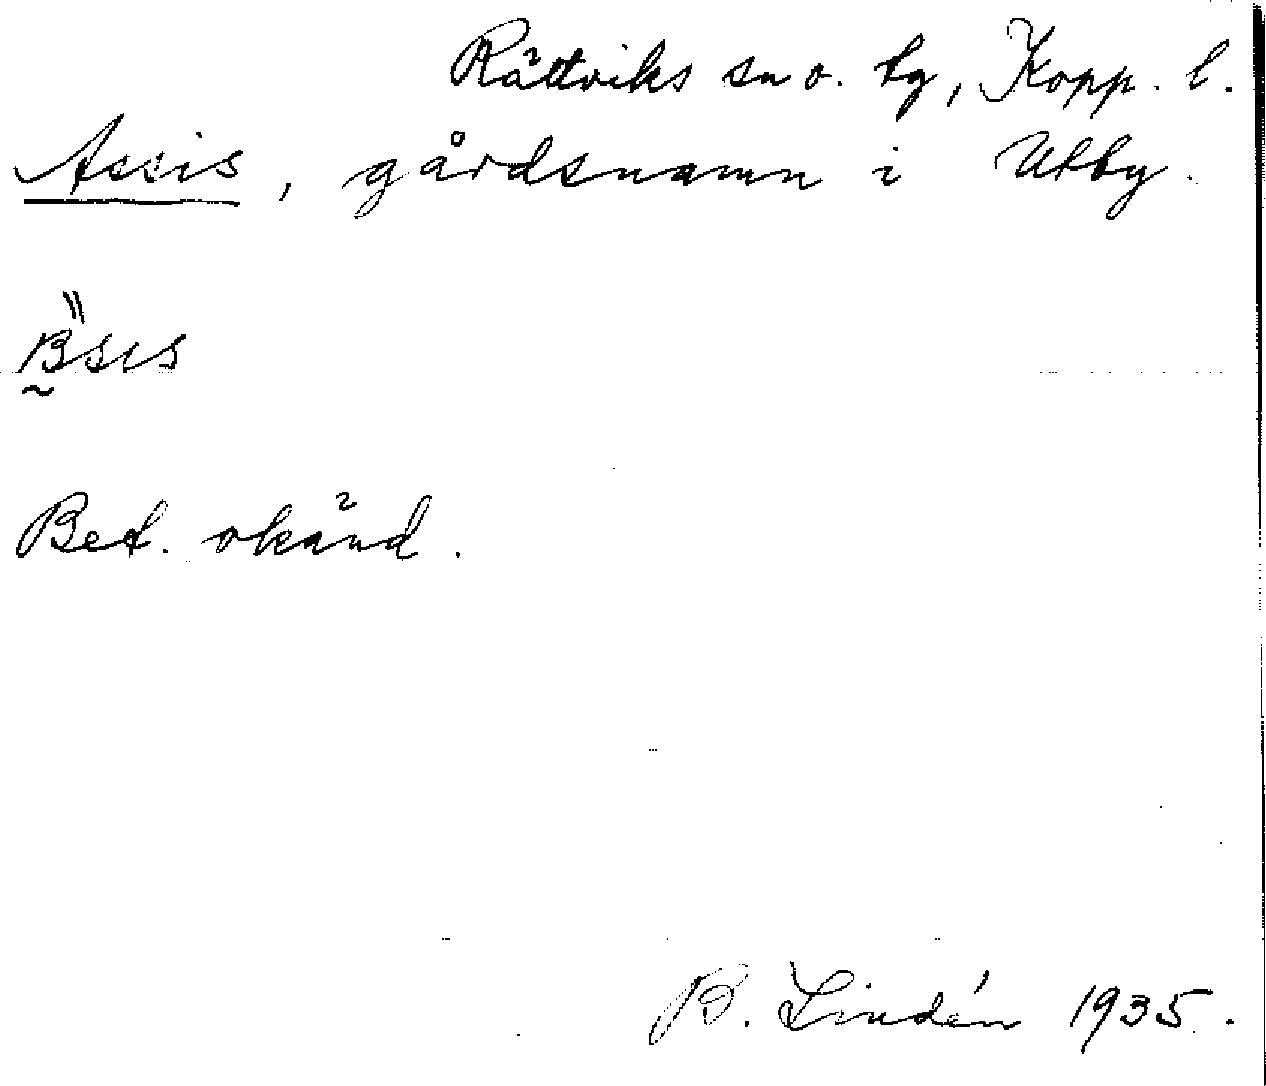 Rättviks sn o. tg, Kopp. l.
Assis, gårdsnamn i Utby.
Bet. okänd.
B. Lindén 1935.